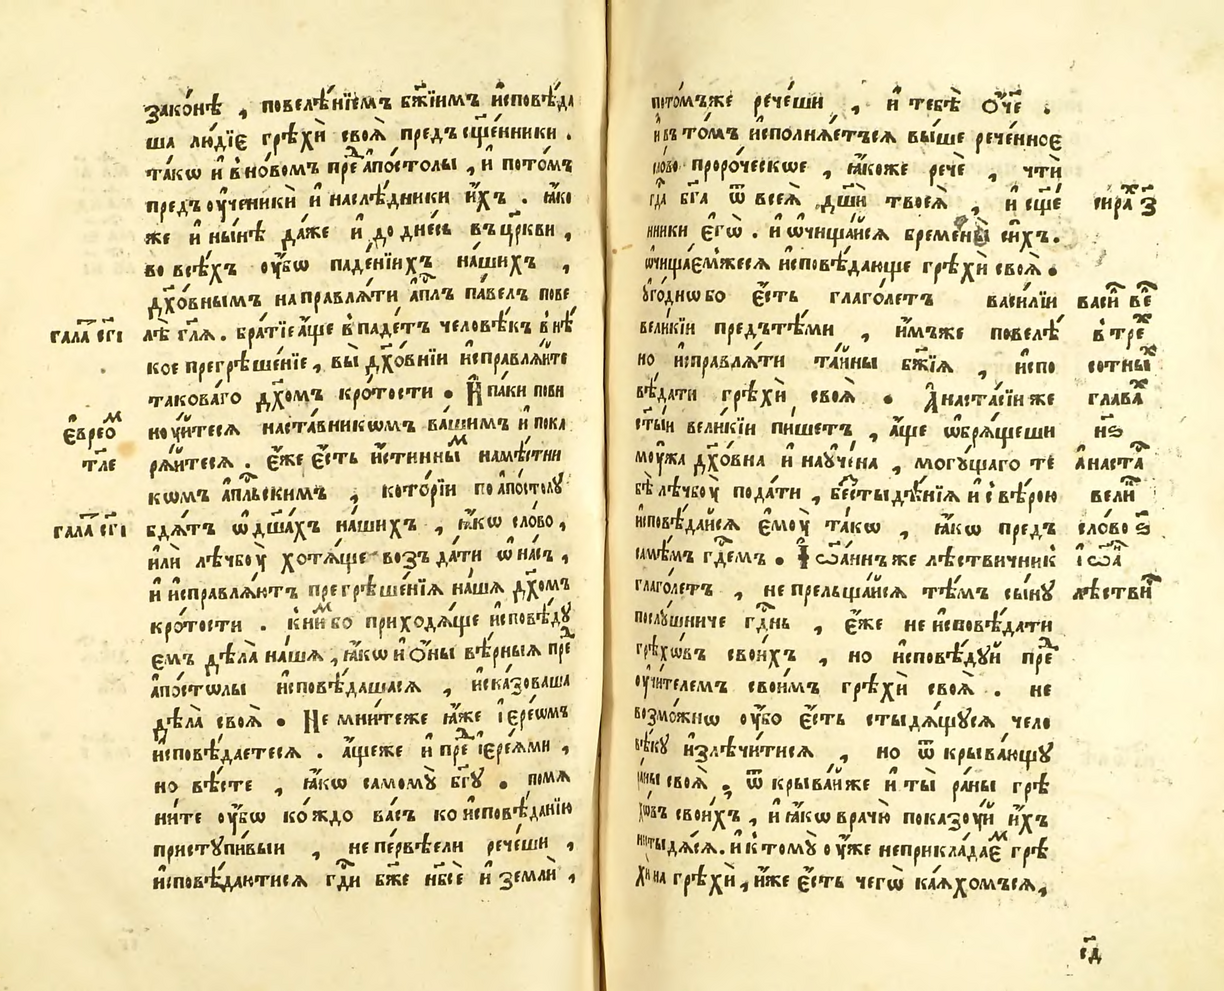 зако́нѣ , повелѣ́нїемъ бж҃їимъ и҆сповѣ́да
ша лю́дїе грѣхѝ своѧ̀ предъ сщ҃е́нники .
та́кѡ и҆ в но́вомъ преⷣ а҆по́столы , и҆ пото́мъ
предъ ᲂу҆ченикѝ и҆ наслѣ́дники и҆́хъ . ꙗ҆́ко
же и҆ ны́нѣ да́же и҆ до дне́сь въ цр҃кви ,
во всѣ́хъ ᲂу҆́бѡ паде́нїихъ на́шихъ ,
дх҃о́внымъ направлѧ́ти а҆пⷭ҇лъ па́велъ пове
лѣ̀ гл҃ѧ . бра́тїе а҆́ще впаде́тъ человѣ́къ в нѣ́
кое прегрѣше́нїе , вы̀ дх҃о́внїи и҆справлѧ́ите
таково́го дх҃омъ кро́тости . И҆ па́ки пови
нꙋ́итесѧ наста́вникѡмъ ва́шимъ и҆ пока
рѧ́йтесѧ . є҆́же є҆́сть и҆́стинныⷨ намѣ́стни
кѡмъ а҆пⷭ҇льскимъ , кото́рїи по а҆по́столꙋ
бдѧ́тъ ѡ҆ дш҃а́хъ на́шихъ , ꙗ҆́кѡ сло́во ,
и҆лѝ лѣчбоу̀ хотѧ́ще возда́ти ѡ҆ на́съ ,
и҆ и҆справлѧ́ютъ прегрѣше́нїѧ на́шѧ дх҃омъ
кро́тости . к ни́ⷨ бо приходѧ́ще и҆сповѣ́дꙋ
емъ дѣла̀ на́шѧ , ꙗ҆́кѡ и҆ ѻ҆́ны вѣ́рныѧ преⷣ
а҆по́стѡлы и҆сповѣ́дашасѧ , и҆ска́зоваша
дѣла̀ своѧ̀ . Не мни́теже ꙗ҆́же і҆ере́ѡмъ
и҆сповѣ́даетесѧ . а҆́щеже и҆ преⷣ і҆ере́ѧми ,
но вѣ́сте , ꙗ҆́кѡ самомꙋ̀ бг҃ꙋ . помѧ
ни́те ᲂу҆́бѡ ко́ждо ва́съ ко и҆сповѣ́данїю
пристꙋпи́выи , не пе́рвѣели рече́ши ,
и҆сповѣ́даютисѧ гдⷭ҇и бж҃е нб҃сѐ и҆ землѝ ,
гала҃ сг҃і
є҆врео́ⷨ
тл҃е
гала҃ сг҃і
пото́мъже рече́ши , и҆ тебѣ̀ ѻ҆́ч҃е .
и҆ въ то́мъ и҆сполнѧ́етъсѧ вы́ше рече́нное
сло́во проро́ческѡе , ꙗ҆́коже речѐ , чтѝ
гдⷭ҇а бг҃а ѿ всеѧ̀ дш҃ѝ твоеѧ̀ , и҆ сщ҃е́
нники є҆гѡ̀ . и҆ ѡ҆чища́йсѧ бремены̀ си́хъ .
ѡ҆чища́емжесѧ и҆сповѣ́дающе грѣхѝ своѧ̀ .
ᲂу҆го́днѡ бо є҆́сть глаго́летъ васи́лїи
вели́кїи предъ тѣ́ми , и҆́мъже повелѣ́
но и҆справлѧ́ти та́йны бж҃їѧ , и҆спо
вѣ́дати грѣхѝ своѧ̀ . А҆наста́сїи же
ст҃ы́и вели́кїи пи́шетъ , а҆́ще ѡ҆брѧ́щеши
моу́жа дх҃о́вна и҆ наꙋче́на , могꙋ́щаго те
бѣ̀ лѣчбоу̀ пода́ти , бестыдѣ́нїѧ и҆ с вѣ́рою
и҆сповѣ́дайсѧ є҆моу̀ та́кѡ , ꙗ҆́кѡ предъ
самѣ́мъ гдⷭ҇емъ . І҆ѡа́ннъ же лѣ́ствичник
глаго́летъ , не прельща́йсѧ тѣ́мъ сы́нꙋ
послꙋ́шниче гдⷭ҇нь , є҆́же не и҆сповѣ́дати
грѣхѡ́въ свои́хъ , но и҆сповѣ́дꙋй преⷣ
ᲂу҆чи́телемъ свои́мъ грѣхѝ своѧ̀ . не
возмо́жнѡ ᲂу҆́бо є҆́сть стыдѧ́щꙋсѧ чело
вѣ́кꙋ и҆злѣчи́тисѧ , но ѿкрыва́ющꙋ
ра́ны своѧ̀ . ѿкрыва́йже и҆ ты̀ ра́ны грѣ
хѡ́въ свои́хъ , и҆ ꙗ҆́кѡ врачю̀ показоуй и҆́хъ
нестыдѧ́сѧ . и҆ к томꙋ̀ ᲂу҆́же неприклада́еⷨ грѣ
хѝ на грѣхѝ , и҆́же є҆́сть чегѡ̀ ка́ѧхомъсѧ ,
сираⷯ з҃
васи́ⷧ веⷧ
в треⷯ
сотныⷯ
глава̀
и҆ѕ
а҆наста́
вели́
сло́во ѕ҃
і҆ѡа́
лѣстви́
сд҃